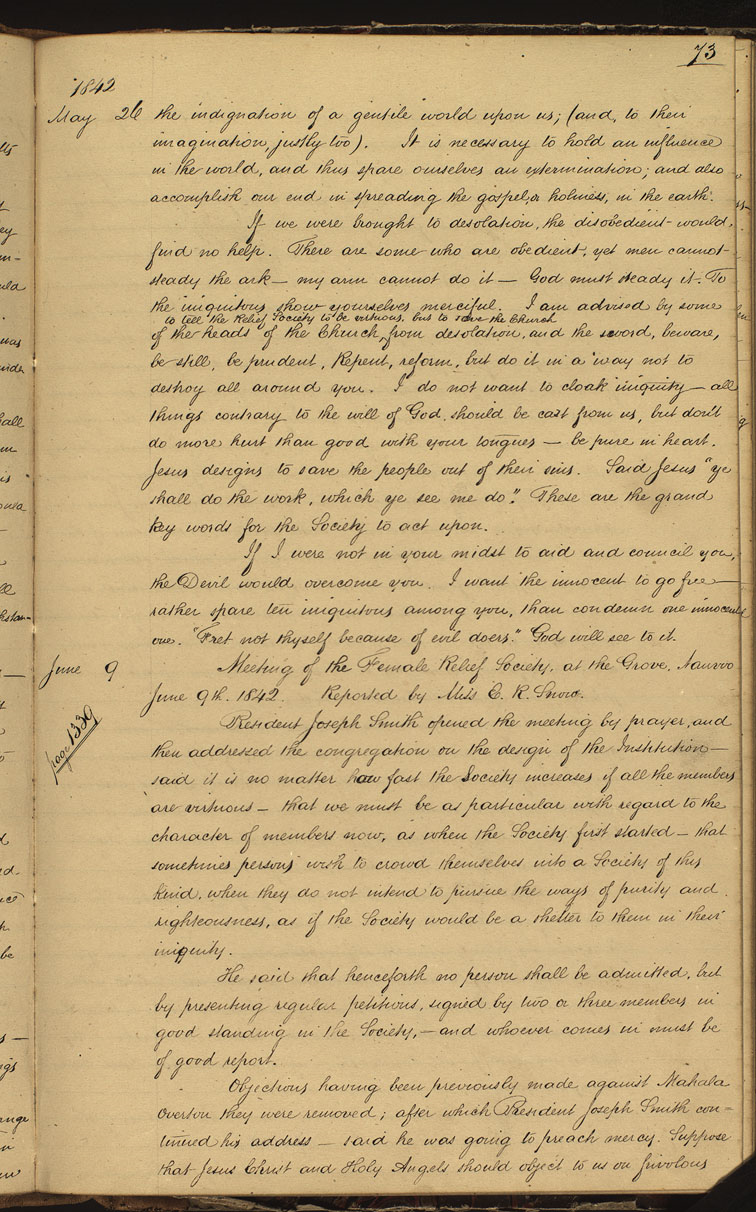 73
1842
May 26 the indignation of a gentile world upon us; (and, to their
imagination, justly too). It is necessary to hold an influence
in the world, and thus spare ourselves an extermination; and also
accomplish our end in spreading the gospel, or holiness, in the earth.
If we were brought to desolation, the disobedient would,
find no help. There are some who are obedient, yet men cannot
steady the ark — my arm cannot do it — God must steady it. To
the iniquitous show yourselves merciful. I am advised by some
to tell the Relief Society to be virtuous, but to save the Church
of the heads of the Church, from desolation, and the sword, beware,
be still, be prudent, Repent, reform, but do it in a way not to
destroy all around you. I do not want to cloak iniquity — all
things contrary to the will of God. should be cast from us, but don't
do more hurt than good with your tongues — be pure in heart.
Jesus designs to save the people out of their sins. Said Jesus "ye
shall do the work, which ye see me do". These are the grand
key words for the Society to act upon.
If I were not in your midst to aid and council you,
the Devil would overcome you. I want the innocent to go free —
rather spare ten iniquitous among you, than condemn one innocent
one. "Fret not thyself because of evil doers." God will see to it.
June 9 Meeting of the Female Relief Society, at the Grove, Nauvoo
June 9th. 1842. Reported by Miss E. R. Snow.
page 1339
President Joseph Smith opened the meeting by prayer, and
then addressed the congregation on the design of the Institution —
said it is no matter how fast the Society increases if all the members
are virtuous — that we must be as particular with regard to the
character of members now, as when the Society first started — that
sometimes persons wish to crowd themselves into a Society of this
kind, when they do not intend to pursue the ways of purity and
righteousness, as if the Society would be a shelter to them in their
iniquity.
He said that henceforth no person shall be admitted, but
by presenting regular petitions, signed by two or three members in
good standing in the Society, — and whoever comes in must be
of good report.
Objections having been previously made against Mahala
Overton they were removed; after which President Joseph Smith con-
tinued his address — said he was going to preach mercy. Suppose
that Jesus Christ and Holy Angels should object to us on frivolous